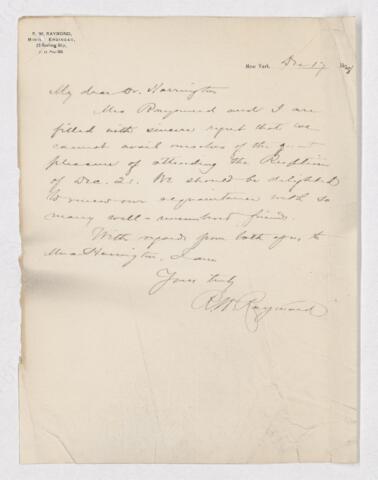 R. W. RAYMOND,
MINING ENGINEER,
New York, Dec 17
My dear Dr. Harrington
Mrs Raymond and I are
filled with sincere regret that we
cannot avail ourselves of the great
pleasure of attending the Reception
of Dec. 21. We should be delighted
to renew our acquaintance with so
many well-remembered friends.
With regards from both of us to
Mrs. Harrington, I am
Yours truly
R. W. Raymond